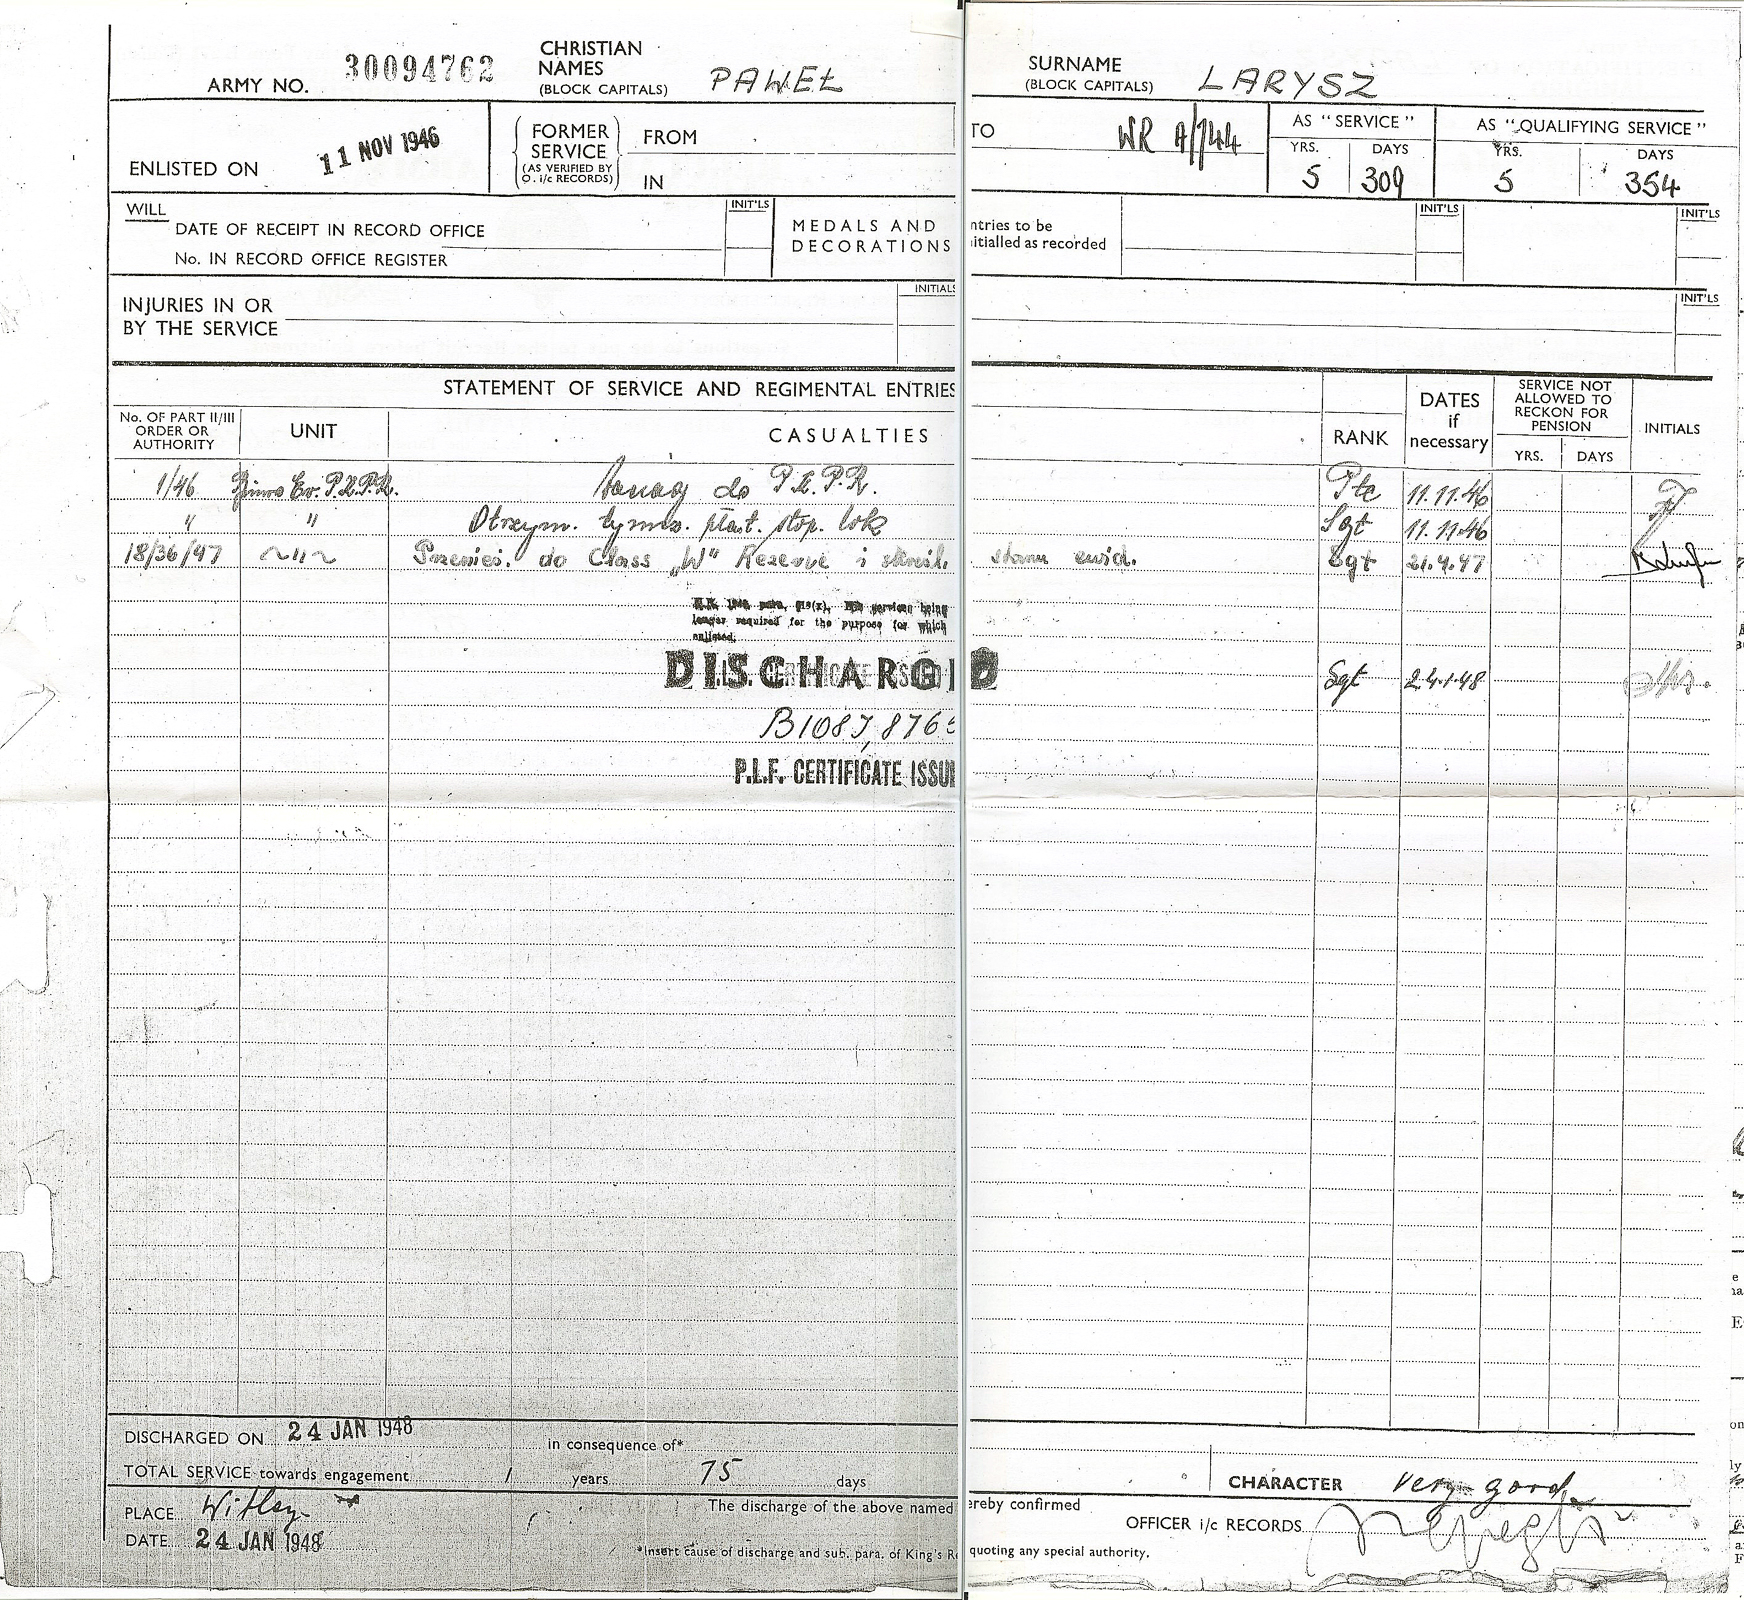 ARMY NO. 30094762 CHRISTIAN NAMES (BLOCK CAPITALS) PAWEŁ SURNAME (BLOCK CAPITALS) LARYSZ
ENLISTED ON 11 NOV 1946 FORMER SERVICE (AS VERIFIED BY O. i/c RECORDS) FROM TO WR A/744
IN
AS "SERVICE" AS "QUALIFYING SERVICE"
YRS. DAYS YRS. DAYS
5 309 5 354
WILL
DATE OF RECEIPT IN RECORD OFFICE
No. IN RECORD OFFICE REGISTER
INIT'LS
MEDALS AND
DECORATIONS
ntries to be
itialled as recorded
INIT'LS INIT'LS
INJURIES IN OR
BY THE SERVICE
INITIALS INIT'LS
STATEMENT OF SERVICE AND REGIMENTAL ENTRIES
No. OF PART II/III ORDER OR AUTHORITY UNIT CASUALTIES RANK DATES if necessary SERVICE NOT ALLOWED TO RECKON FOR PENSION INITIALS
YRS. DAYS
1/46 Ev. P.R.P.R. do P.R.P.R. Pte 11.11.46
" " Otrzym. tymcz. płat. stop. Sgt 11.11.46
18/36/47 ~"~ Przenies. do Class „W" Reserve i skreśl. stanu ewid. Sgt 21.4.47
services being
longer required for the purpose for which
enlisted.
DISCHARGED Sgt 24.1.48
B1087,876
P.L.F. CERTIFICATE ISSU
DISCHARGED ON 24 JAN 1948 in consequence of*
TOTAL SERVICE towards engagement 1 years 75 days CHARACTER very good
PLACE Witley The discharge of the above named ereby confirmed
DATE 24 JAN 1948 OFFICER i/c RECORDS
*Insert cause of discharge and sub. para. of King's Re quoting any special authority.